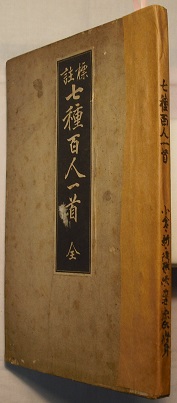 標註
七種百人一首
全
七種百人一首